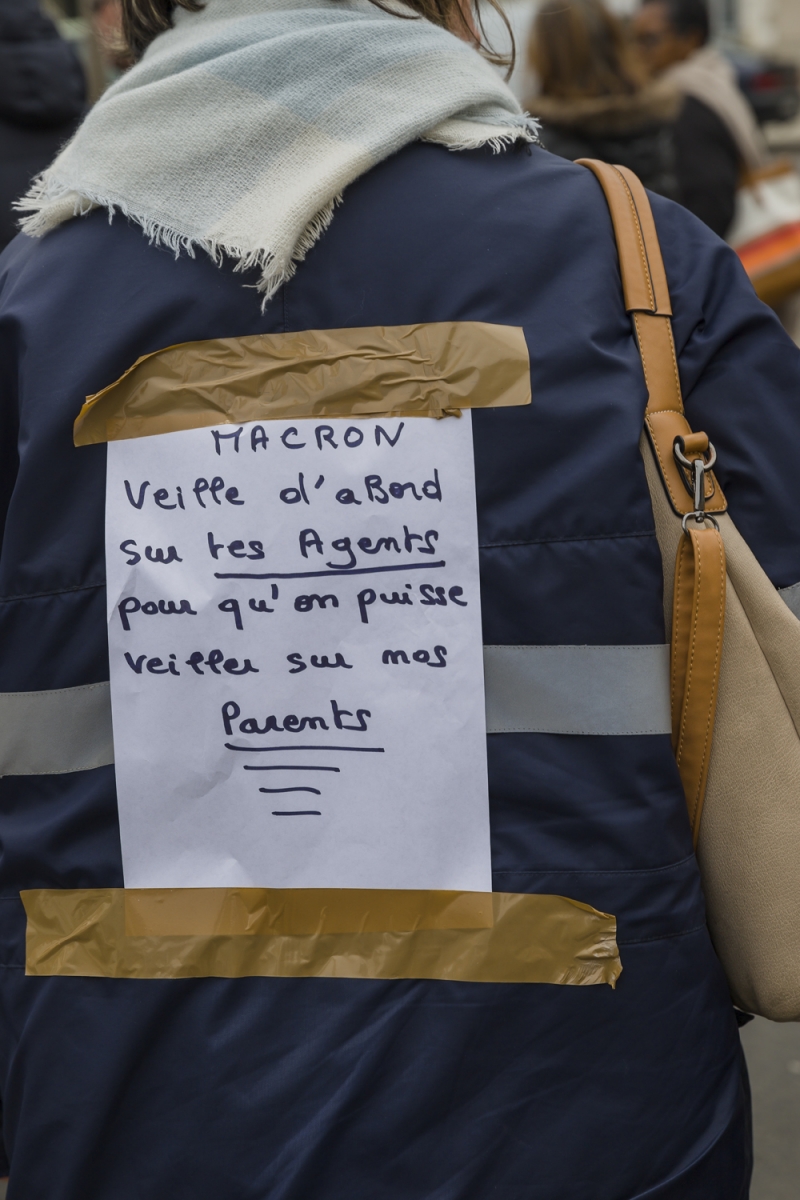 MACRON
Veille d'aBord
sur tes Agents
pour qu'on puisse
veiller sur nos
Parents